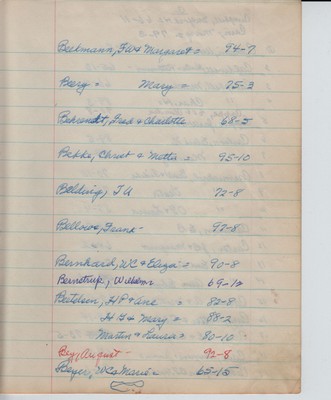 Beekmann, F.W. & Margaret = 94-7
Berg = Mary = 75-3
Behrendt, Fred & Charlotte 68-5
Bekke, Christ & Metta = 95-10
Belding, J A 72-8
Bellows, Frank - 97-8
Bernhard, WC & Eliza = 90-8
Berntrup, William 69-12
Bertelsen, H P & Ane = 82-8
H F & Mary = 88-2
Martin & Laura = 80-10
Bey, August - 92-8
Beyer, Marie = 65-15